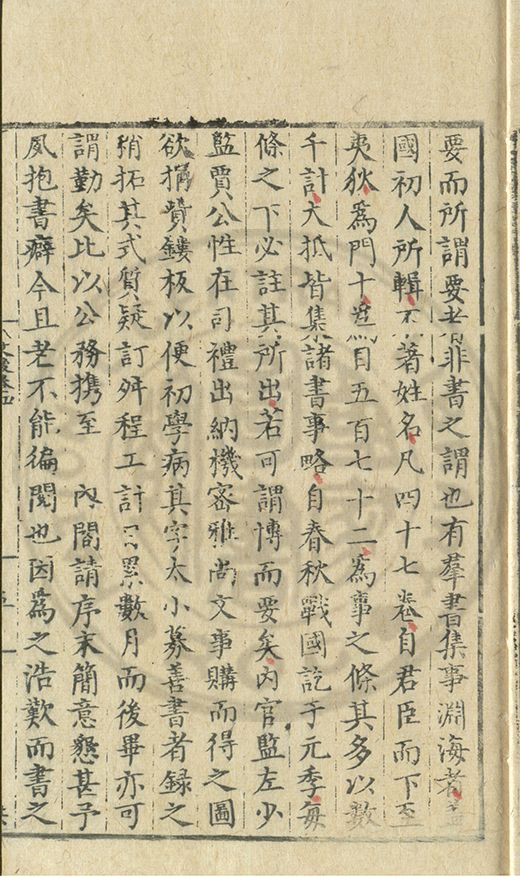 要而所謂要者非書之謂也有羣書集事淵海者
國初人所輯不著姓名凡四十七卷自君臣而下至
夷狄爲門十爲目五百七十二爲事之條其多以數
千計大抵皆集諸書事略自春秋戰國訖于元季每
條之下必註其所出若可謂博而要矣內官監左少
監賈公性在司禮出納機密雅尚文事購而得之圖
欲捐貲鏤板以便初學病其字太小募善書者録之
稍拓其式質疑訂舛程工計日累數月而後畢亦可
謂勤矣比以公務携至 內閣請序末簡意懇甚予
夙抱書癖今且老不能徧閱也因爲之浩歎而書之